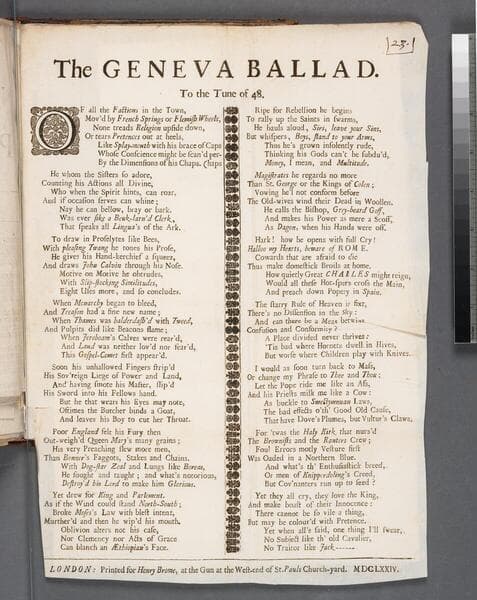 [23.]
The GENEVA BALLAD.
To the Tune of 48.
OF all the Factions in the Town,
Mov'd by French Springs or Flemish Wheels,
None treads Religion upside down,
Or tears Pretences out at heels,
Like Splay-mouth with his brace of Caps
Whose Conscience might be scan'd per-
By the Dimensions of his Chaps. (haps
He whom the Sisters so adore,
Counting his Actions all Divine,
Who when the Spirit hints, can roar,
And if occasion serves can whine;
Nay he can bellow, bray or bark.
Was ever sike a Beuk-larn'd Clerk,
That speaks all Lingua's of the Ark.
To draw in Proselytes like Bees,
With pleasing Twang he tones his Prose,
He gives his Hand-kerchief a squeez,
And draws John Calvin through his Nose.
Motive on Motive he obtrudes,
With Slip-stocking Similitudes,
Eight Uses more, and so concludes.
When Monarchy began to bleed,
And Treason had a fine new name;
When Thames was balderdash'd with Tweed,
And Pulpits did like Beacons flame;
When Jeroboam's Calves were rear'd,
And Laud was neither lov'd nor fear'd,
This Gospel-Comet first appear'd.
Soon his unhallowed Fingers strip'd
His Sov'reign Liege of Power and Land,
And having smote his Master, slip'd
His Sword into his Fellows hand.
But he that wears his Eyes may note,
Oftimes the Butcher binds a Goat,
And leaves his Boy to cut her Throat.
Poor England felt his Fury then
Out-weigh'd Queen Mary's many grains;
His very Preaching slew more men,
Than Bonner's Faggots, Stakes and Chains.
With Dog-star Zeal and Lungs like Boreas,
He fought and taught; and what's notorious,
Destroy'd his Lord to make him Glorious.
Yet drew for King and Parlement.
As if the Wind could stand North-South;
Broke Moses's Law with blest intent,
Murther'd and then he wip'd his mouth.
Oblivion alters not his case,
Nor Clemency nor Acts of Grace
Can blanch an Æthiopian's Face.
Ripe for Rebellion he begins
To rally up the Saints in swarms,
He bauls aloud, Sirs, leave your Sins,
But whispers, Boys, stand to your Arms,
Thus he's grown insolently rude,
Thinking his Gods can't be subdu'd,
Money, I mean, and Multitude.
Magistrates he regards no more
Than St. George or the Kings of Colen;
Vowing he'l not conform before
The Old-wives wind their Dead in Woollen.
He calls the Bishop, Grey-beard Goff,
And makes his Power as mere a Scoff,
As Dagon, when his Hands were off.
Hark! how he opens with full Cry!
Hallow my Hearts, beware of ROME.
Cowards that are afraid to die
Thus make domestick Broils at home.
How quietly Great CHARLES might reign,
Would all these Hot-spurs cross the Main,
And preach down Popery in Spain.
The starry Rule of Heaven is fixt,
There's no Dissension in the sky:
And can there be a Mean betwixt
Confusion and Conformity?
A Place divided never thrives:
'Tis bad where Hornets dwell in Hives,
But worse where Children play with Knives.
I would as soon turn back to Mass,
Or change my Phrase to Thee and Thou;
Let the Pope ride me like an Ass,
And his Priests milk me like a Cow:
As buckle to Smectymnuan Laws,
The bad effects o'th' Good Old Cause,
That have Dove's Plumes, but Vultur's Claws.
For 'twas the Holy Kirk that nurs'd
The Brownists and the Ranters Crew;
Foul Errors motly Vesture first
Was Oaded in a Northern Blue.
And what's th' Enthusiastick breed,
Or men of Knipperdoling's Creed,
But Cov'nanters run up to seed?
Yet they all cry, they love the King,
And make boast of their Innocence:
There cannot be so vile a thing,
But may be colour'd with Pretence.
Yet when all's said, one thing I'll swear,
No Subject like th' old Cavalier,
No Traitor like Jack———
LONDON: Printed for Henry Brome, at the Gun at the West-end of St. Pauls Church-yard. MDCLXXIV.